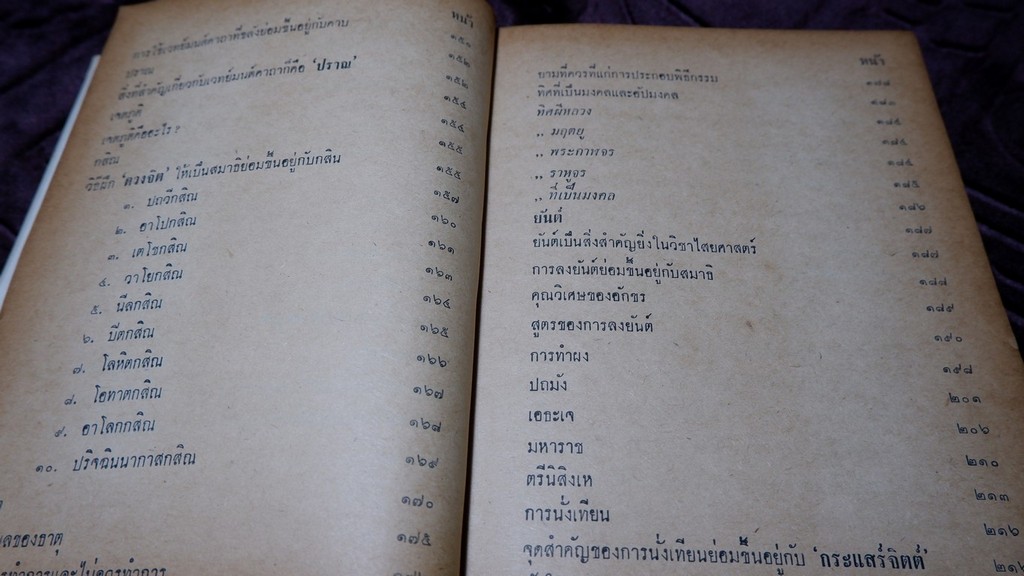 หน้า
การใช้เวทย์มนต์คาถาที่ขลังย่อมขึ้นอยู่กับคาบ
ปราณ ๑๕๑
สิ่งที่สำคัญเกี่ยวกับเวทย์มนต์คาถาก็คือ ‘ปราณ’ ๑๕๒
เจตภูติ ๑๕๒
เจตภูติคืออะไร ? ๑๕๔
กสิณ ๑๕๔
วิธีฝึก ‘ดวงจิต’ ให้เป็นสมาธิย่อมขึ้นอยู่กับกสิณ ๑๕๕
๑. ปถวีกสิณ ๑๕๕
๒. อาโปกสิณ ๑๕๗
๓. เตโชกสิณ ๑๖๐
๔. วาโยกสิณ ๑๖๑
๕. นีลกสิณ ๑๖๓
๖. ปีตกสิณ ๑๖๔
๗. โลหิตกสิณ ๑๖๕
๘. โอทาตกสิณ ๑๖๖
๙. อาโลกกสิณ ๑๖๗
๑๐. ปริจฉินนากาสกสิณ ๑๖๘
๑๖๙
๑๗๐
ของธาตุ ๑๗๕
หน้า
ยามที่ควรที่แก่การประกอบพิธีกรรม ๑๗๗
ทิศที่เป็นมงคลและอัปมงคล ๑๘๐
ทิศผีหลวง ๑๘๔
,, มฤตยู ๑๘๔
,, พระกาฬจร ๑๘๔
,, ราหูจร ๑๘๕
,, ที่เป็นมงคล ๑๘๖
ยันต์ ๑๘๗
ยันต์เป็นสิ่งสำคัญยิ่งในวิชาไสยศาสตร์ ๑๘๗
การลงยันต์ย่อมขึ้นอยู่กับสมาธิ ๑๘๘
คุณวิเศษของอักขร ๑๘๙
สูตรของการลงยันต์ ๑๙๐
การทำผง ๑๙๘
ปถมัง ๒๐๑
เอธะเจ ๒๐๖
มหาราช ๒๑๐
ตรีนิสิงเห ๒๑๓
การนั่งเทียน ๒๑๖
จุดสำคัญของการนั่งเทียนย่อมขึ้นอยู่กับ ‘กระแสร์จิตต์’